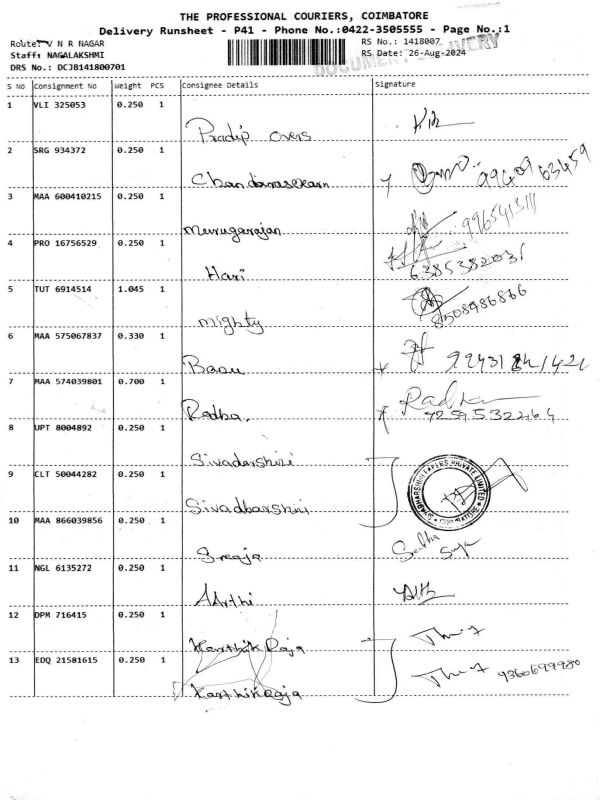 THE PROFESSIONAL COURIERS, COIMBATORE
Delivery Runsheet - P41 - Phone No.:0422-3505555 - Page No.:1
Route: V N R NAGAR
RS No.: 1418007
Staff: NAGALAKSHMI
RS Date: 26-Aug-2024
DRS No.: DCJB141800701
DOCUMENT DELIVERY
S No Consignment No Weight PCS Consignee Details Signature
1 VLI 325053 0.250 1
Pradip overs
2 SRG 934372 0.250 1
Chandarasekam
3 MAA 600410215 0.250 1
Murugarajan
4 PRO 16756529 0.250 1
Hari 6385382031
5 TUT 6914514 1.045 1
Mighty 8508486866
6 MAA 575067837 0.330 1
Basu
7 MAA 574039801 0.700 1
Radha
Radha. 7259532264
8 UPT 8004892 0.250 1
Sivadarshini
9 CLT 50044282 0.250 1
Sivadharshini
PAPERS PRIVATE LIMITED
COIMBATORE
10 MAA 866039856 0.250 1
Sreeja
11 NGL 6135272 0.250 1
AArthi
12 DPM 716415 0.250 1
Karthik Raja
13 EDQ 21581615 0.250 1
KarthikRaja 9360699980